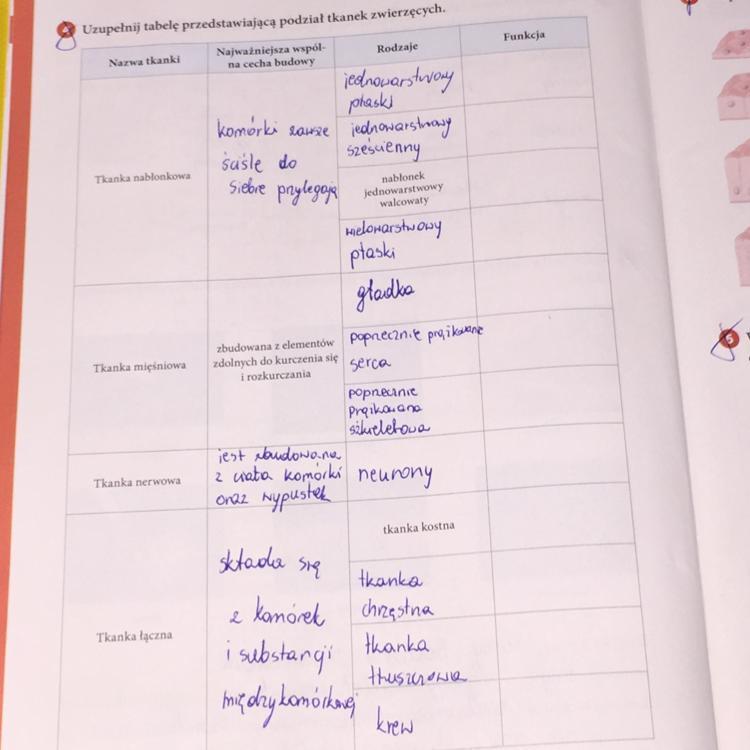 4 Uzupełnij tabelę przedstawiającą podział tkanek zwierzęcych.
Nazwa tkanki
Najważniejsza wspól-
na cecha budowy
Rodzaje
Funkcja
Tkanka nabłonkowa
komórki zawsze
ściśle do
siebie przylegają
jednowarstwowy
płaski
jednowarstwowy
sześcienny
nabłonek
jednowarstwowy
walcowaty
wielowarstwowy
płaski
Tkanka mięśniowa
zbudowana z elementów
zdolnych do kurczenia się
i rozkurczania
gładka
poprzecznie prążkowane
serca
poprzecznie
prążkowana
szkieletowa
Tkanka nerwowa
jest zbudowana
z ciała komórki
oraz wypustek
neurony
Tkanka łączna
składa się
z komórek
i substancji
międzykomórkowej
tkanka kostna
tkanka
chrzęstna
tkanka
tłuszczowa
krew
5